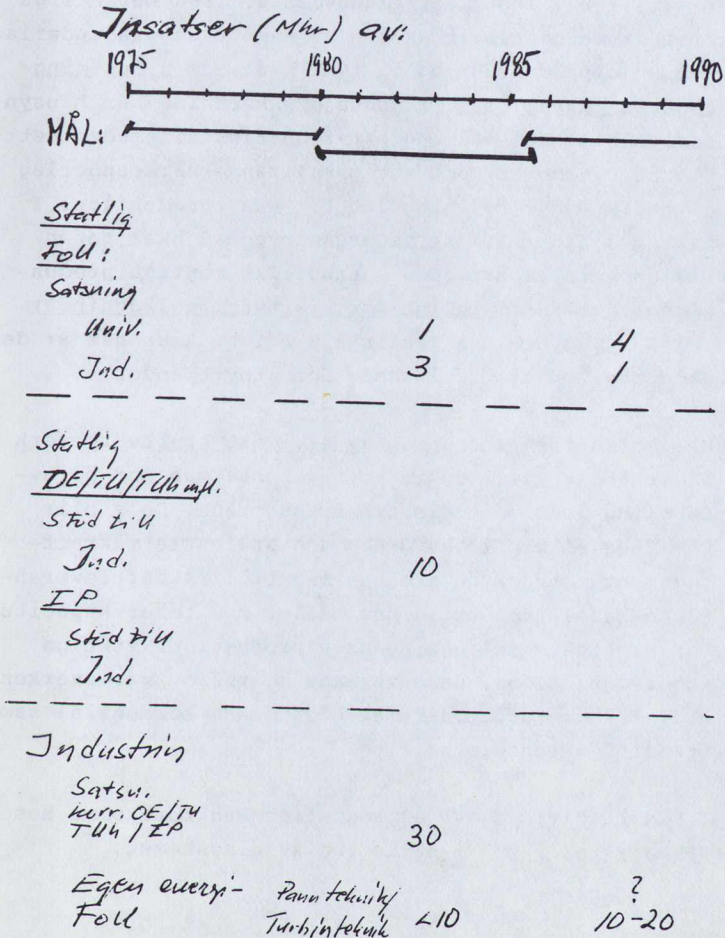 Insatser (Mkr) av:
1975 1980 1985 1990
MÅL:
Statlig
FoU:
Satsning
Univ. 1 4
Ind. 3 1
Statlig
OE/TU/TUh mfl.
Stöd till
Ind. 10
IP
Stöd till
Ind.
Industrin
Satsn.
korr. OE/TU
TUh / IP 30
Egen energi- Pannteknik/ ?
FoU Turbinteknik <10 10-20